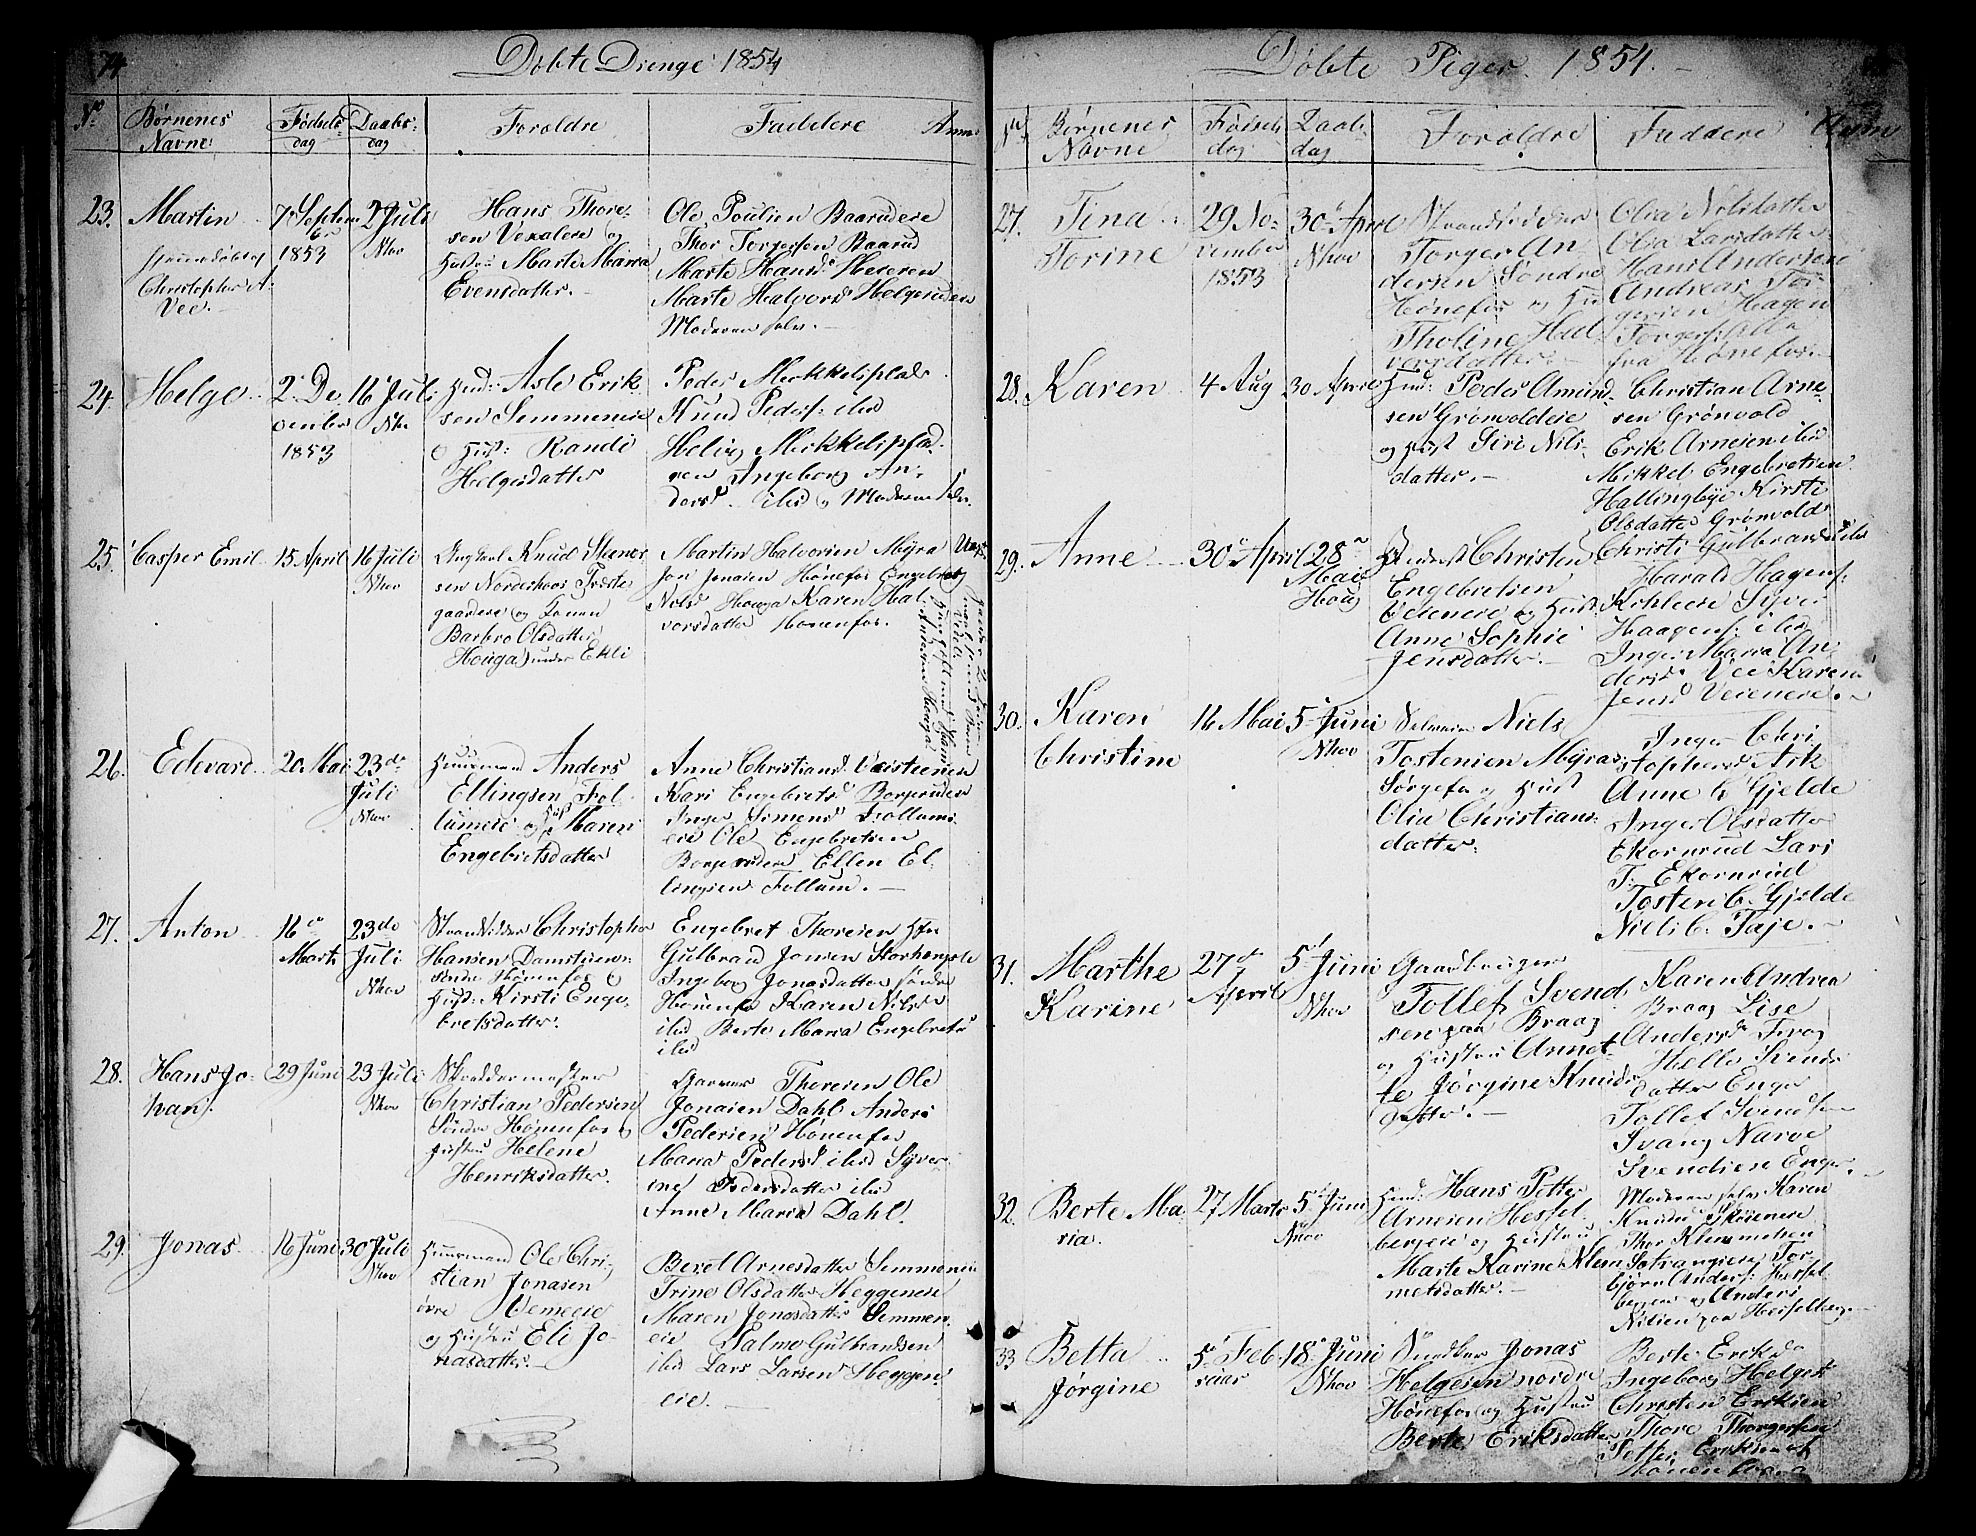 74
Döbte Drenge 1854
No
Børnenes Navne
Fødsels dag
Daabs dag
Foroldre
Faddere
Anm
23.
Martin
Christopher A:
Vee.
7de Septem
ber
1853
2 Juli
Nhov
Hans Thore-
sen Vexalere og
Hustru Marte Maria
Evensdatter.
Ole Poulsen Baarudere
Thor Torgersen Baarud
Marte Hansd Hereren
Marte Halvorsd Helgeruden
Moderen selv.
24.
Helge
2. De
cember
1853
16 Juli
Nho
Husm: Asle Erik
sen Semmenie
og Hust: Randi
Helgesdatter
Peder Mekkelsplads
Knud Peders: ibid
Helvig Mekkelsplad-
sen Ingeborg An-
dersd. ibid og Moderen selv.
25.
Casper Emil
15 April
16 Juli
Nhov
Ungkarl Knud Steners
sen Norderhovs Præste
gaardere og Konen
Barbro Olsdatter
Houga under Ekli
Martin Halvorsen Myra
Jon Jonsen Hönefos Engebret
Nilsd Houga Karen Hal-
vorsdatter Hönenfos.
26.
Edevard
20. Mai
23de
Juli
Nhov
Huusmand Anders
Ellingsen Fol-
lumeie og Hust Maren
Engebretsdatter
Anne Christiansd. Veistenen
Kari Engebretsd Borgerudere
Inger Simensd Follums
eie Ole Engebretsen
Borgerudere Ellen El-
lingsen Follum.
27.
Anton
16de
Marts
23de
Juli
Nhov
Strandsidder Christopher
Hansen Damstuen
søndre Hönenfos og
Hust: Kirsti Enge-
bretsdatter.
Engebret Thoresen Hfn
Gulbrand Jonsen Storhengsle
Ingeborg Jonasdatter søndre
Hönenfos Karen Nilsd
ibid Berte Maria Engebretsd
ibid
28.
Hans Jo-
han.
29 Juni
23 Juli
Nhov
Skreddermester
Christian Pedersen
Söndre Hönenfos og
Hustru Helene
Henriksdatter.
Garver Thoresen Ole
Jonasen Dahl Anders
Pedersen Hönenfos
Maria Pedersd ibid Syver-
ine Pedersdatter ibid
Anne Maria Dahl.
29.
Jonas
16 Juni
30 Juli
Nhov
Huusmand Ole Chri-
stian Jonasen
övre Vemeeie
og Hustru Eli Jo-
nasdatter.
Beret Arnesdatter Semmenie
Trine Olsdatter Heggeneie
Maren Jonasdatter Semmen-
eie Salmo Gulbrandsen
ibid Lars Larsen Heggen-
eie.
Döbte Piger 1854.
No
Børnenes Navne
Födsels dag
Daabs dag
Foroldre
Faddere
Anm
27.
Tina
Torine
29 No-
vember
1853
30 April
Nhov
Strandsidder
Torger An
dersen Söndre
Hönefos og Hu
Tholine Hal-
vorsdatter.
Olia Nilsdatter
Olia Larsdatter
Hans Andersen
Andreas Tor
gersen Hagen
Torgersen alle
fra Hönefos.
28.
Karen
4 Aug
30 April
Husm: Peder Amund-
sen Grönvoldeie
og Hust Siri Nils-
datter.
Christian Arne-
sen Grönvold
Erik Arnesen ibid
Mikkel Engebretsen
Hallingbye Kirsti
Olsdatter Grönvold
29.
Anne
30 April
28
Mai
Houg
Christen
Engebretsen
Veienere og Hust
Anne Sophie
Jensdatter.
Christi Gulbrandsd ibid
Harald Hagens:
Syver
Haagens: ibid
Inger Maria An-
dersd Vee Karen
Jensd Veienere.
30.
Karen
Christine
16 Mai
5 Juni
Nhov
Selveier Niels
Tostensen Myra
Sörgefos og Hust
Olia Christians-
datter.
Inger Chri
stophersd Ask
Anne C Gjelde
Inger Olsdatter
Ekornrud Lars
T: Ekornrud
Tosten C. Gjelde
Niels C. Faje.
31.
Marthe
Karine
27de
April
5 Juni
Nhov
Gaardbruger
Tollef Svend
sen paa Braag
og Hustru Annet-
te Jörgine Knuds-
datter.
Karen Andrea
Braag Lise
Andersd Foog
Helle Svends
datter Enger
Tollef Svendsen
Svang Narve
Svendsen Enger.
32.
Berte Ma-
ria.
27 Marts
5 Juni
Nhov
Husm: Hans Petter
Arnesen Hessel-
bergeie og Hustru
Marte Karine Klem
metsdatter.
Moderen selv Karen
Knudsd Skiienere
Thor Klemmetsen
Sotrangeie Tor-
björn Anders: Hessel
bergeie og Anders
Nilsen paa Hesselberg
33
Betta
Jörgine
5 Feb-
ruar
18 Juni
Nhov
Snedker Jonas
Helgesen nordre
Hönefos og Hustru
Berte Eriksdatter
Berte Eriksd
Ingeborg Helgesd
Christen Eriksen
Thore Thorgersen
Petter Eriksen af